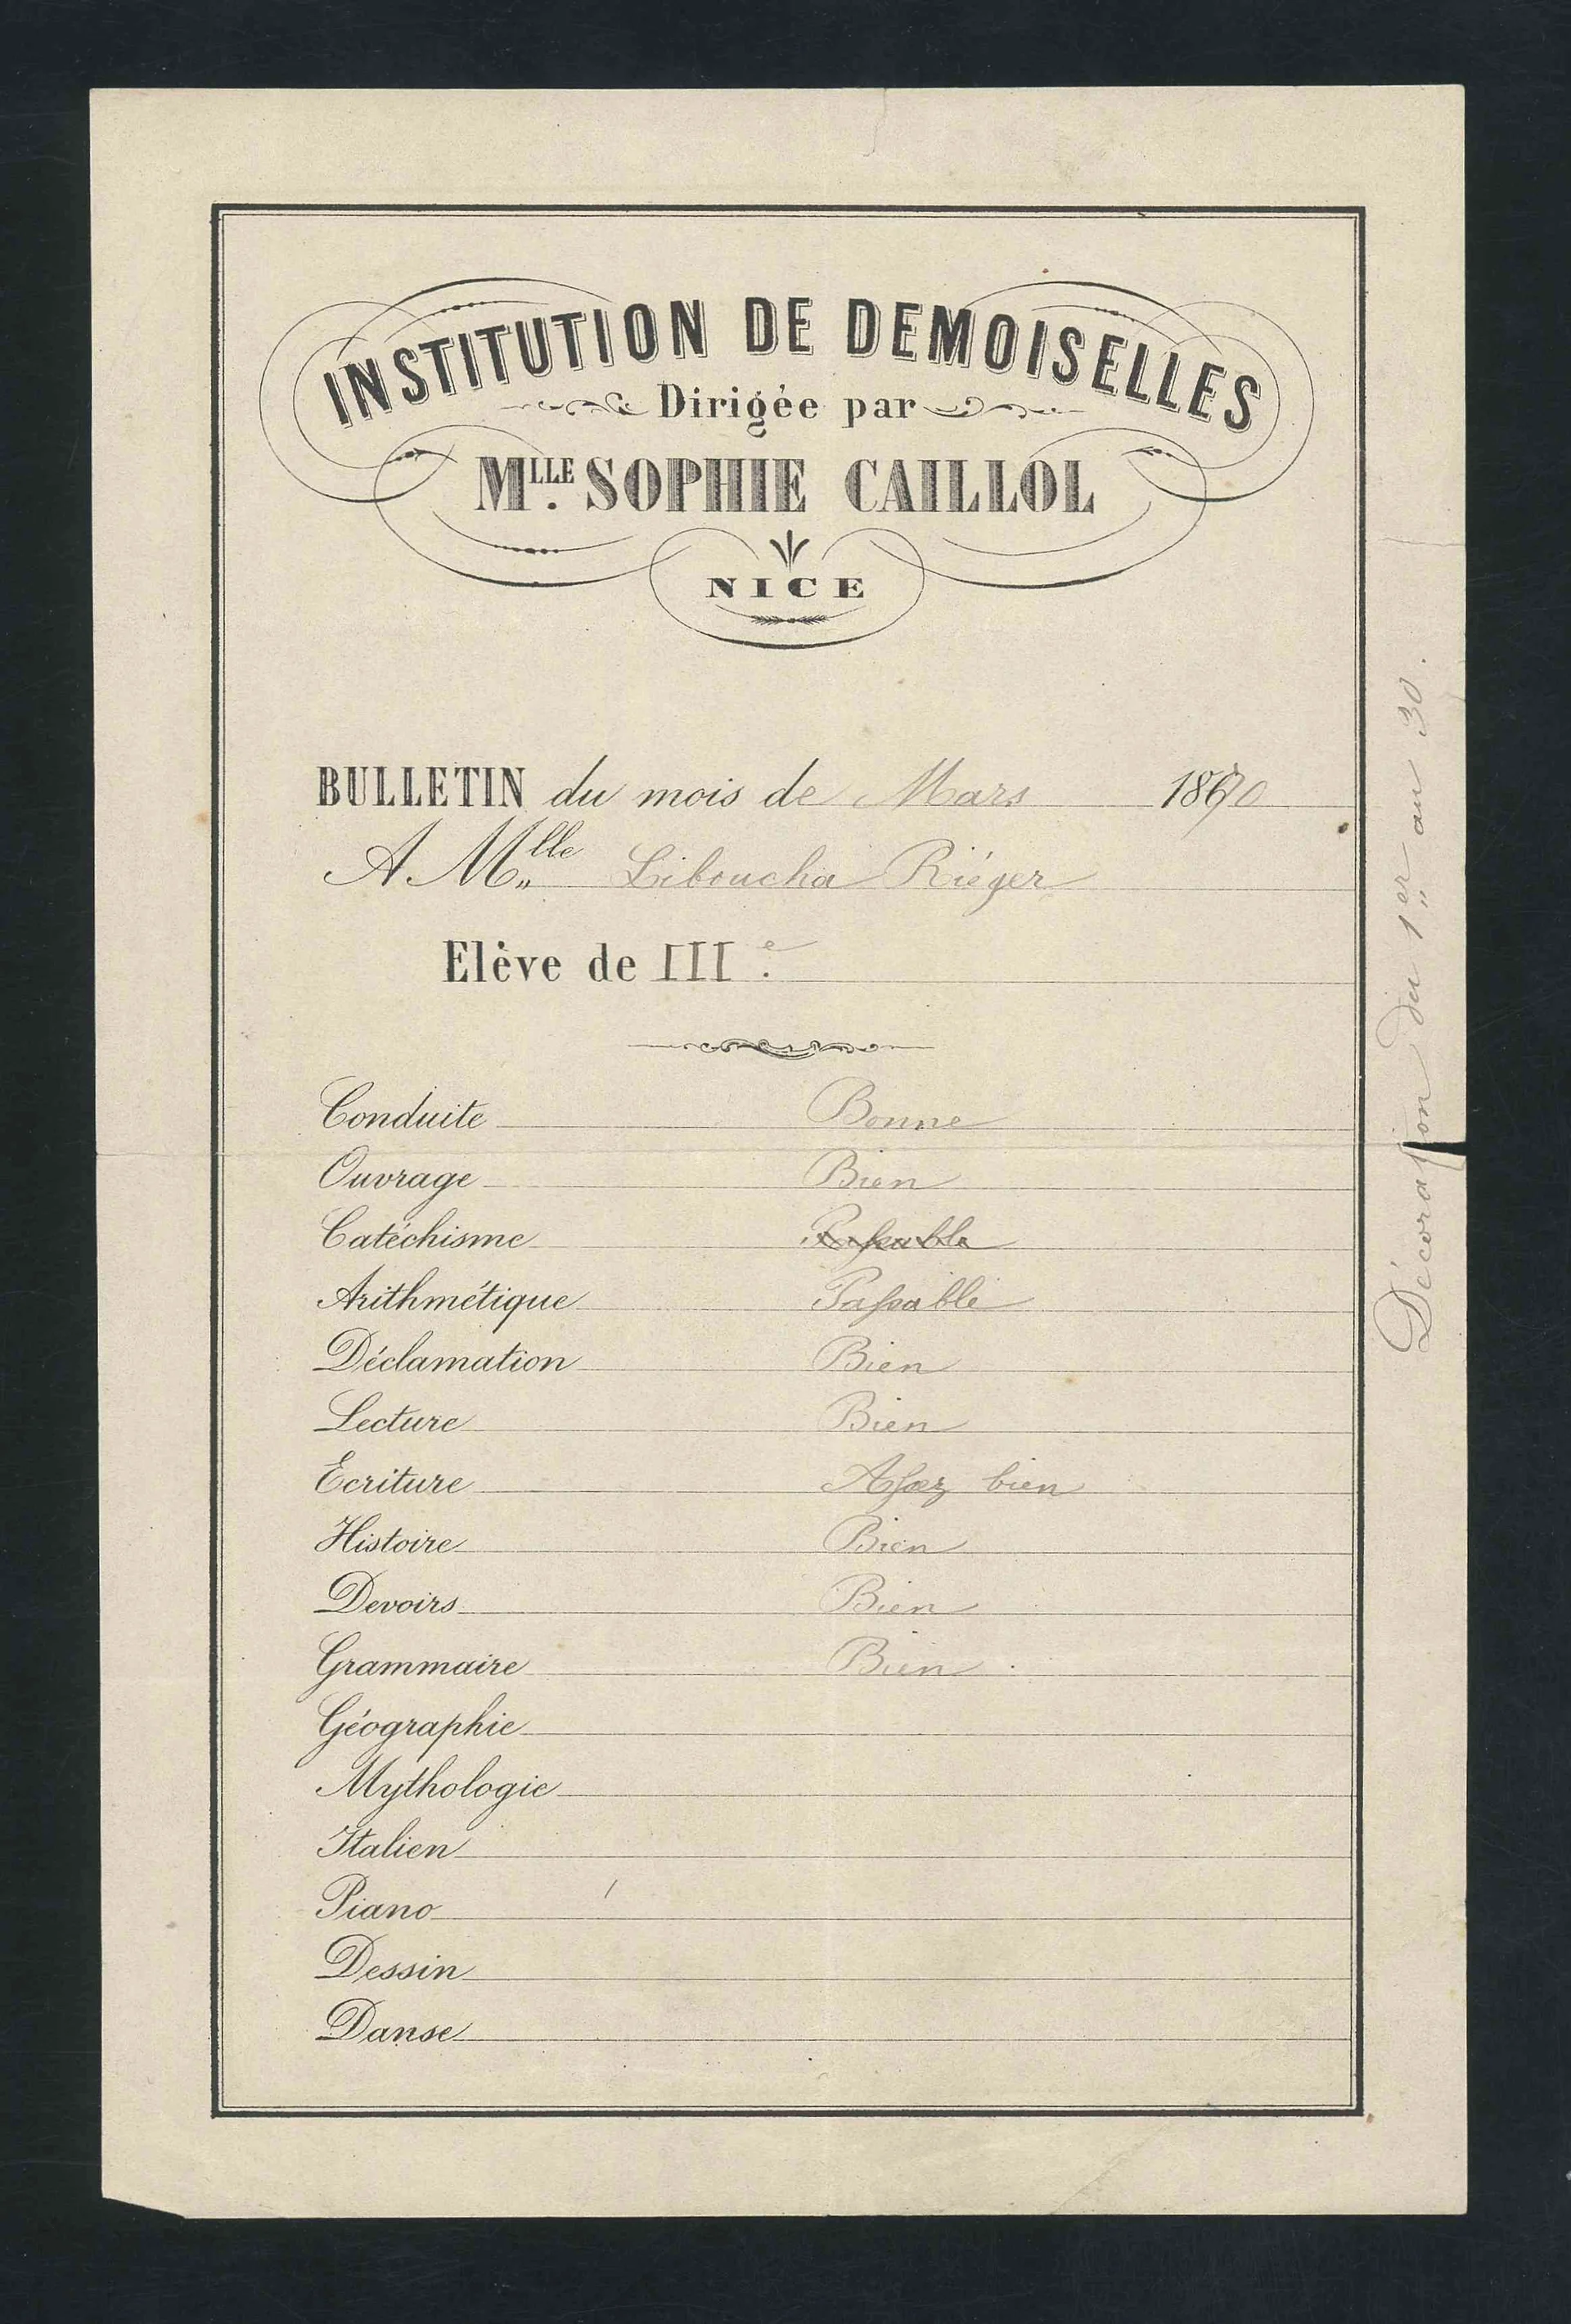 INSTITUTION DE DEMOISELLES
Dirigée par
MLLE. SOPHIE CAILLOL
NICE
BULLETIN du mois de Mars 1870
A Mlle Liboucha Riéger
Elève de III e.
Conduite Bonne
Ouvrage Bien
Catéchisme Passable
Arithmétique Passable
Déclamation Bien
Lecture Bien
Ecriture Assez bien
Histoire Bien
Devoirs Bien
Grammaire Bien .
Géographie
Mythologie
Italien
Piano
Dessin
Danse
Décoration du 1er au 30.